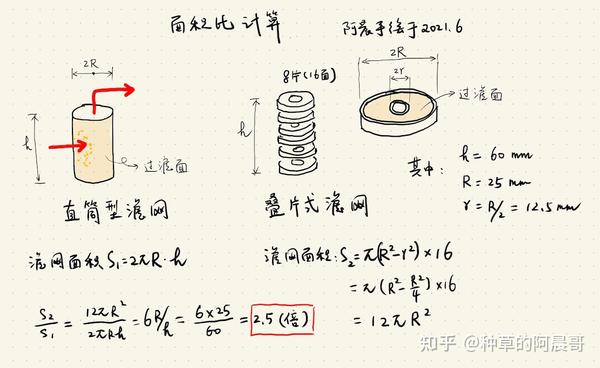 面积比计算
阿晨手绘于2021.6
2R
h
过滤面
直筒型滤网
8片(16面)
h
叠片式滤网
2R
2r
过滤面
其中: h = 60 mm
R = 25 mm
r = R/2 = 12.5 mm
滤网面积 S₁=2πR·h
滤网面积: S₂ = π(R²-r²)×16
= π(R²-R²/4)×16
= 12πR²
S₂/S₁ = 12πR²/2πRh = 6R/h = 6×25/60 = 2.5 (倍)
知乎 @种草的阿晨哥